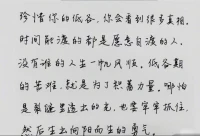 珍惜你的低谷，你会看到很多真相。
时间能渡的都是愿意自渡的人，
没有谁的人生一帆风顺，低谷期
的苦难，就是为了积蓄力量，哪怕
是裂缝里透出的光，也要牢牢抓住，
然后生出向阳而生的勇气。